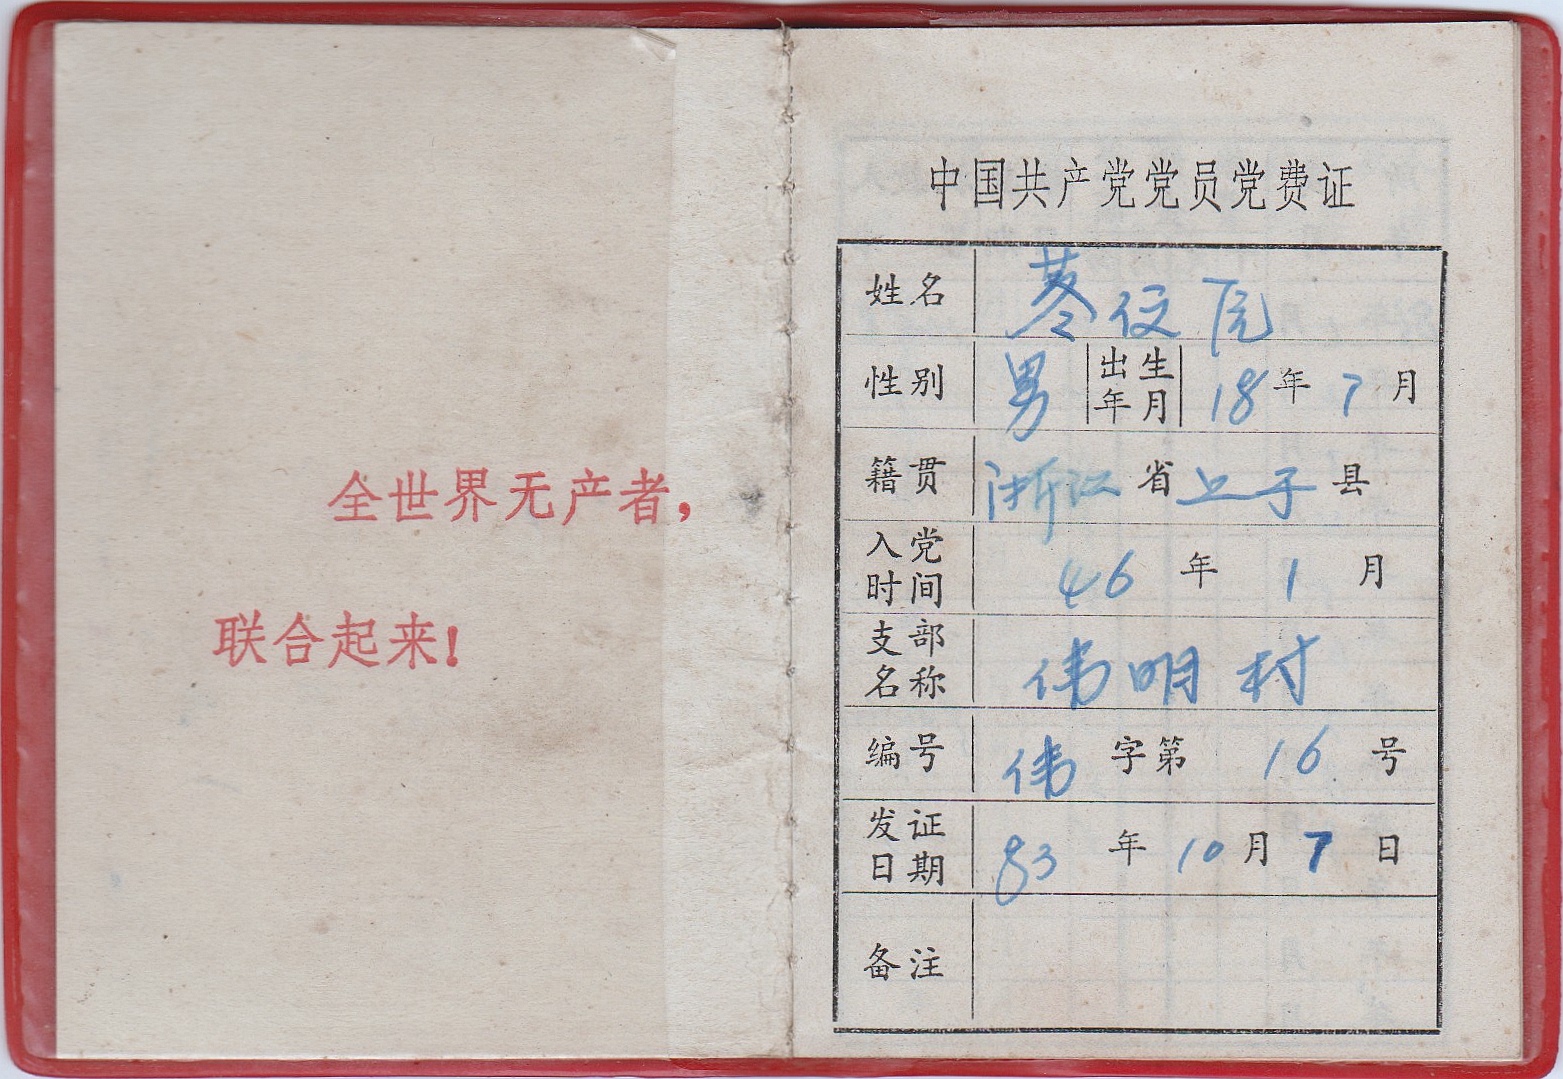 全世界无产者，
联合起来！
中国共产党党员党费证
姓名
性别 男 出生年月 18年7月
籍贯 浙江省上于县
入党时间 46年1月
支部名称 伟明村
编号 伟字第16号
发证日期 83年10月7日
备注